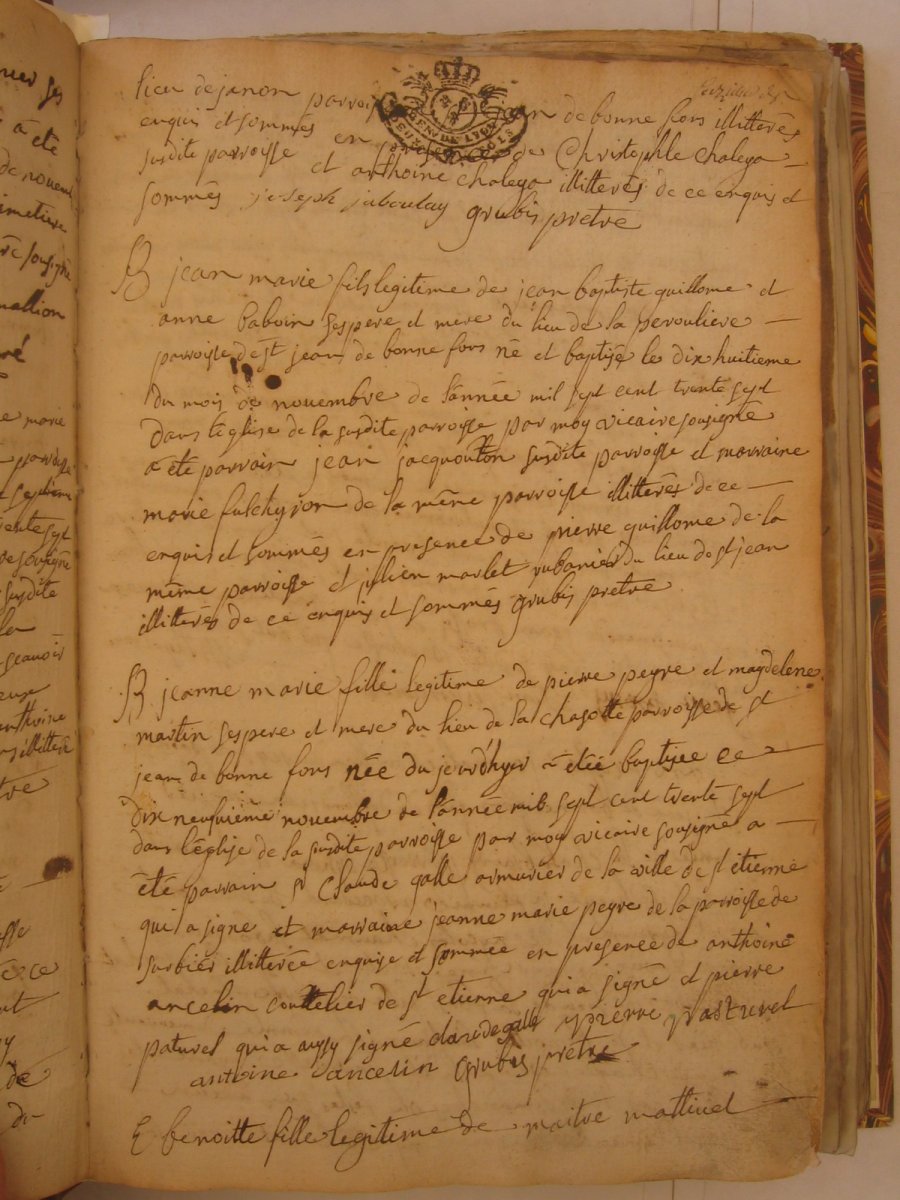 lieu de janon parroisse de bonne fons illitterés
enquis et sommés en presence de Christophle Chaleya
susdite parroisse et anthoine Chaleya illitterés de ce enquis et
sommés joseph jaboulay grubis pretre
GEN. DE LYON
B jean marie fils legitime de jean baptiste guillome et
anne baboin ses pere et mere du lieu de la perouliere
parroisse de st jean de bonne fons né et baptisé le dix huitieme
du mois de novembre de l'année mil sept cent trente sept
dans l'eglise de la susdite parroisse par moy vicaire sousigné
a été parrain jean jacquotton susdite parroisse et marraine
marie fulchyron de la même parroisse illitterés de ce
enquis et sommés en presence de pierre guillome de la
même parroisse et julien marlet rubanier du lieu de st jean
illitterés de ce enquis et sommés grubis pretre
B jeanne marie fille legitime de pierre peyre et magdelene
martin ses pere et mere du lieu de la chasotte parroisse de st
jean de bonne fons née du jourd'hyer a étéé baptisée ce
dix neufuieme novembre de l'année mil sept cent trente sept
dans l'église de la susdite parroisse par moy vicaire sousigné a
été parrain sr Claude galle armurier de la ville de st étienne
qui a signé et marraine jeanne marie peyre de la parroisse de
sorbier illitterée enquise et sommée en presence de anthoine
ancelin couttelier de st etienne qui a signé et pierre
paturel qui a aussy signé claude galle pierre pasturel
antoine ancelin grubis pretre
E benoitte fille legitime de maitre mathieu